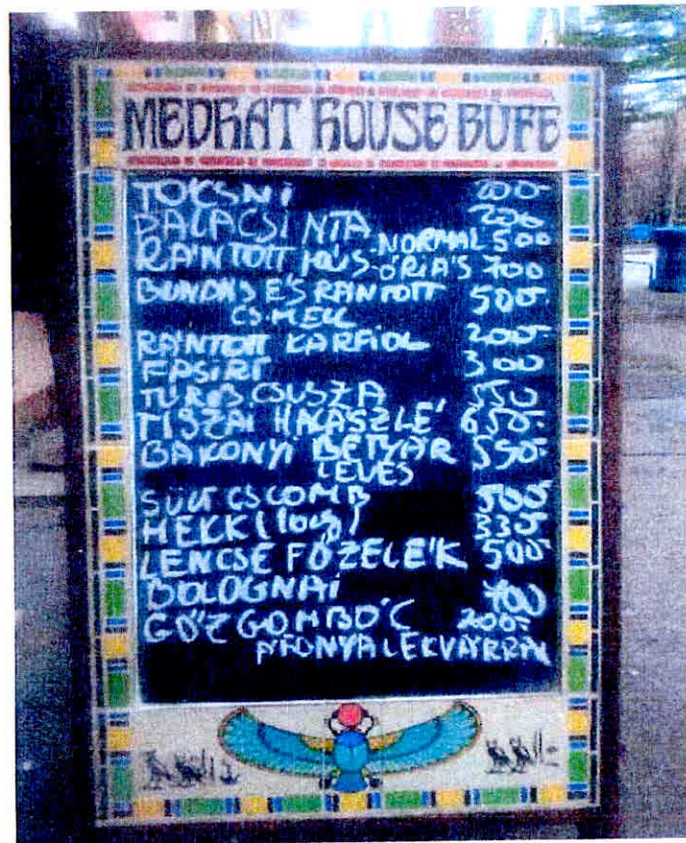 MEDHAT HOUSE BÜFÉ
TOCSNI 200-
PALACSINTA 200
RÁNTOTT HÚS -NORMÁL 500
-ÓRIÁS 700
BUNDÁS ÉS RÁNTOTT 500-
CS.MELL
RÁNTOTT KARFIOL 200-
FASÍRT 300
TÚRÓS CSUSZA 550
TISZAI HALÁSZLÉ 650-
BAKONYI BETYÁR 550-
LEVES
SÜLT CSCOMB 500-
HEKK (10dg) 330-
LENCSE FŐZELÉK 500-
BOLOGNAI 400
GŐZGOMBÓC 200-
ÁFONYALEKVÁRRAL